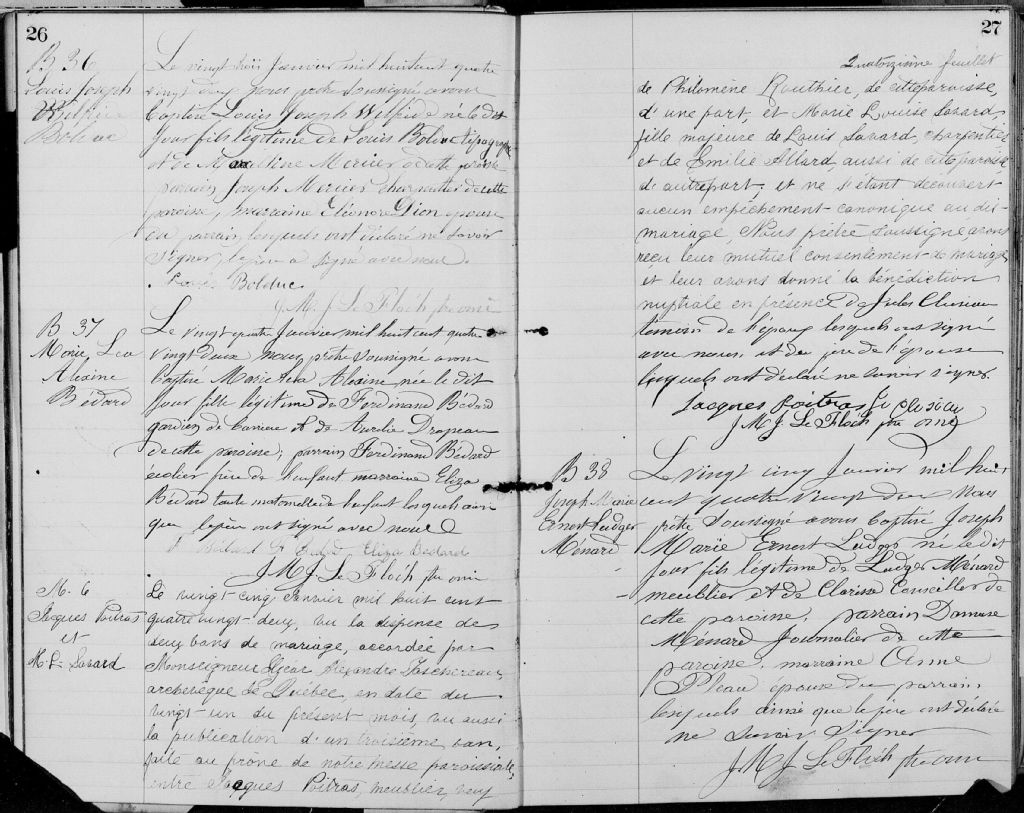 26
B 36
Louis Joseph
Wilfrid
Bolduc
Le vingt trois Janvier mil huit cent quatre
vingt deux nous prêtre soussigné avons
baptisé Louis Joseph Wilfrid né le dit
jour fils légitime de Louis Bolduc typographe
et de Mercier de cette paroisse
parrain Joseph Mercier charpentier de cette
paroisse, marraine Eléonore Dion épouse
du parrain lesquels ont déclaré ne savoir
signer, le père a signé avec nous.
Louis Bolduc
J. M. J. Le Floch ptre
B 37
Marie Lea
Alexine
Bédard
Le vingt-quatre Janvier mil huit cent quatre
vingt deux nous, prêtre soussigné avons
baptisé Marie Lea Alexine, née le dit
jour fille légitime de Ferdinand Bédard
gardien de et de Aurélie Drapeau
de cette paroisse; parrain Ferdinand Bédard
écolier frère de l'enfant marraine Eliza
Bédard tante maternelle de l'enfant lesquels ainsi
que le père ont signé avec nous
F. Bédard Eliza Bedard
J M J Le Floch ptre
M. 6
Jacques Poitras
et
M. L. Savard
Le vingt-cinq Janvier mil huit cent
quatre vingt-deux, vu la dispense de
deux bans de mariage, accordée par
Monseigneur Elzéar Alexandre Taschereau,
archevêque de Québec, en date du
vingt-un du présent mois, vu aussi
la publication d'un troisième ban,
faite au prône de notre messe paroissiale,
entre Jacques Poitras, meublier, veuf
27
Quatorzième feuillet
de Philomène Routhier, de cette paroisse,
d'une part, et Marie Louise Savard
fille majeure de Louis Savard, charpentier
et de Emilie Allard, aussi de cette paroisse
d'autre part; et ne s'étant découvert
aucun empêchement canonique au dit
mariage, Nous prêtre soussigné, avons
reçu leur mutuel consentement de mariage
et leur avons donné la bénédiction
nuptiale en présence de Jules Clusiau
témoin de l'époux lesquels ont signé
avec nous, et du père de l'épouse
lesquels ont déclaré ne savoir signer.
Jacques Poitras J. Clusiau
J. M. J. Le Floch ptre
B 38
Joseph Marie
Ernest Ludger
Ménard
Le vingt cinq Janvier mil huit
cent quatre vingt deux Nous
prêtre soussigné avons baptisé Joseph
Marie Ernest Ludger né le dit
jour fils légitime de Ludger Ménard
meublier et de Clarisse Conseiller de
cette paroisse, parrain Damase
Ménard journalier de cette
paroisse, marraine Anne
Pleau épouse du parrain
lesquels ainsi que le père ont déclaré
ne savoir signer
J. M. J. Le Floch ptre